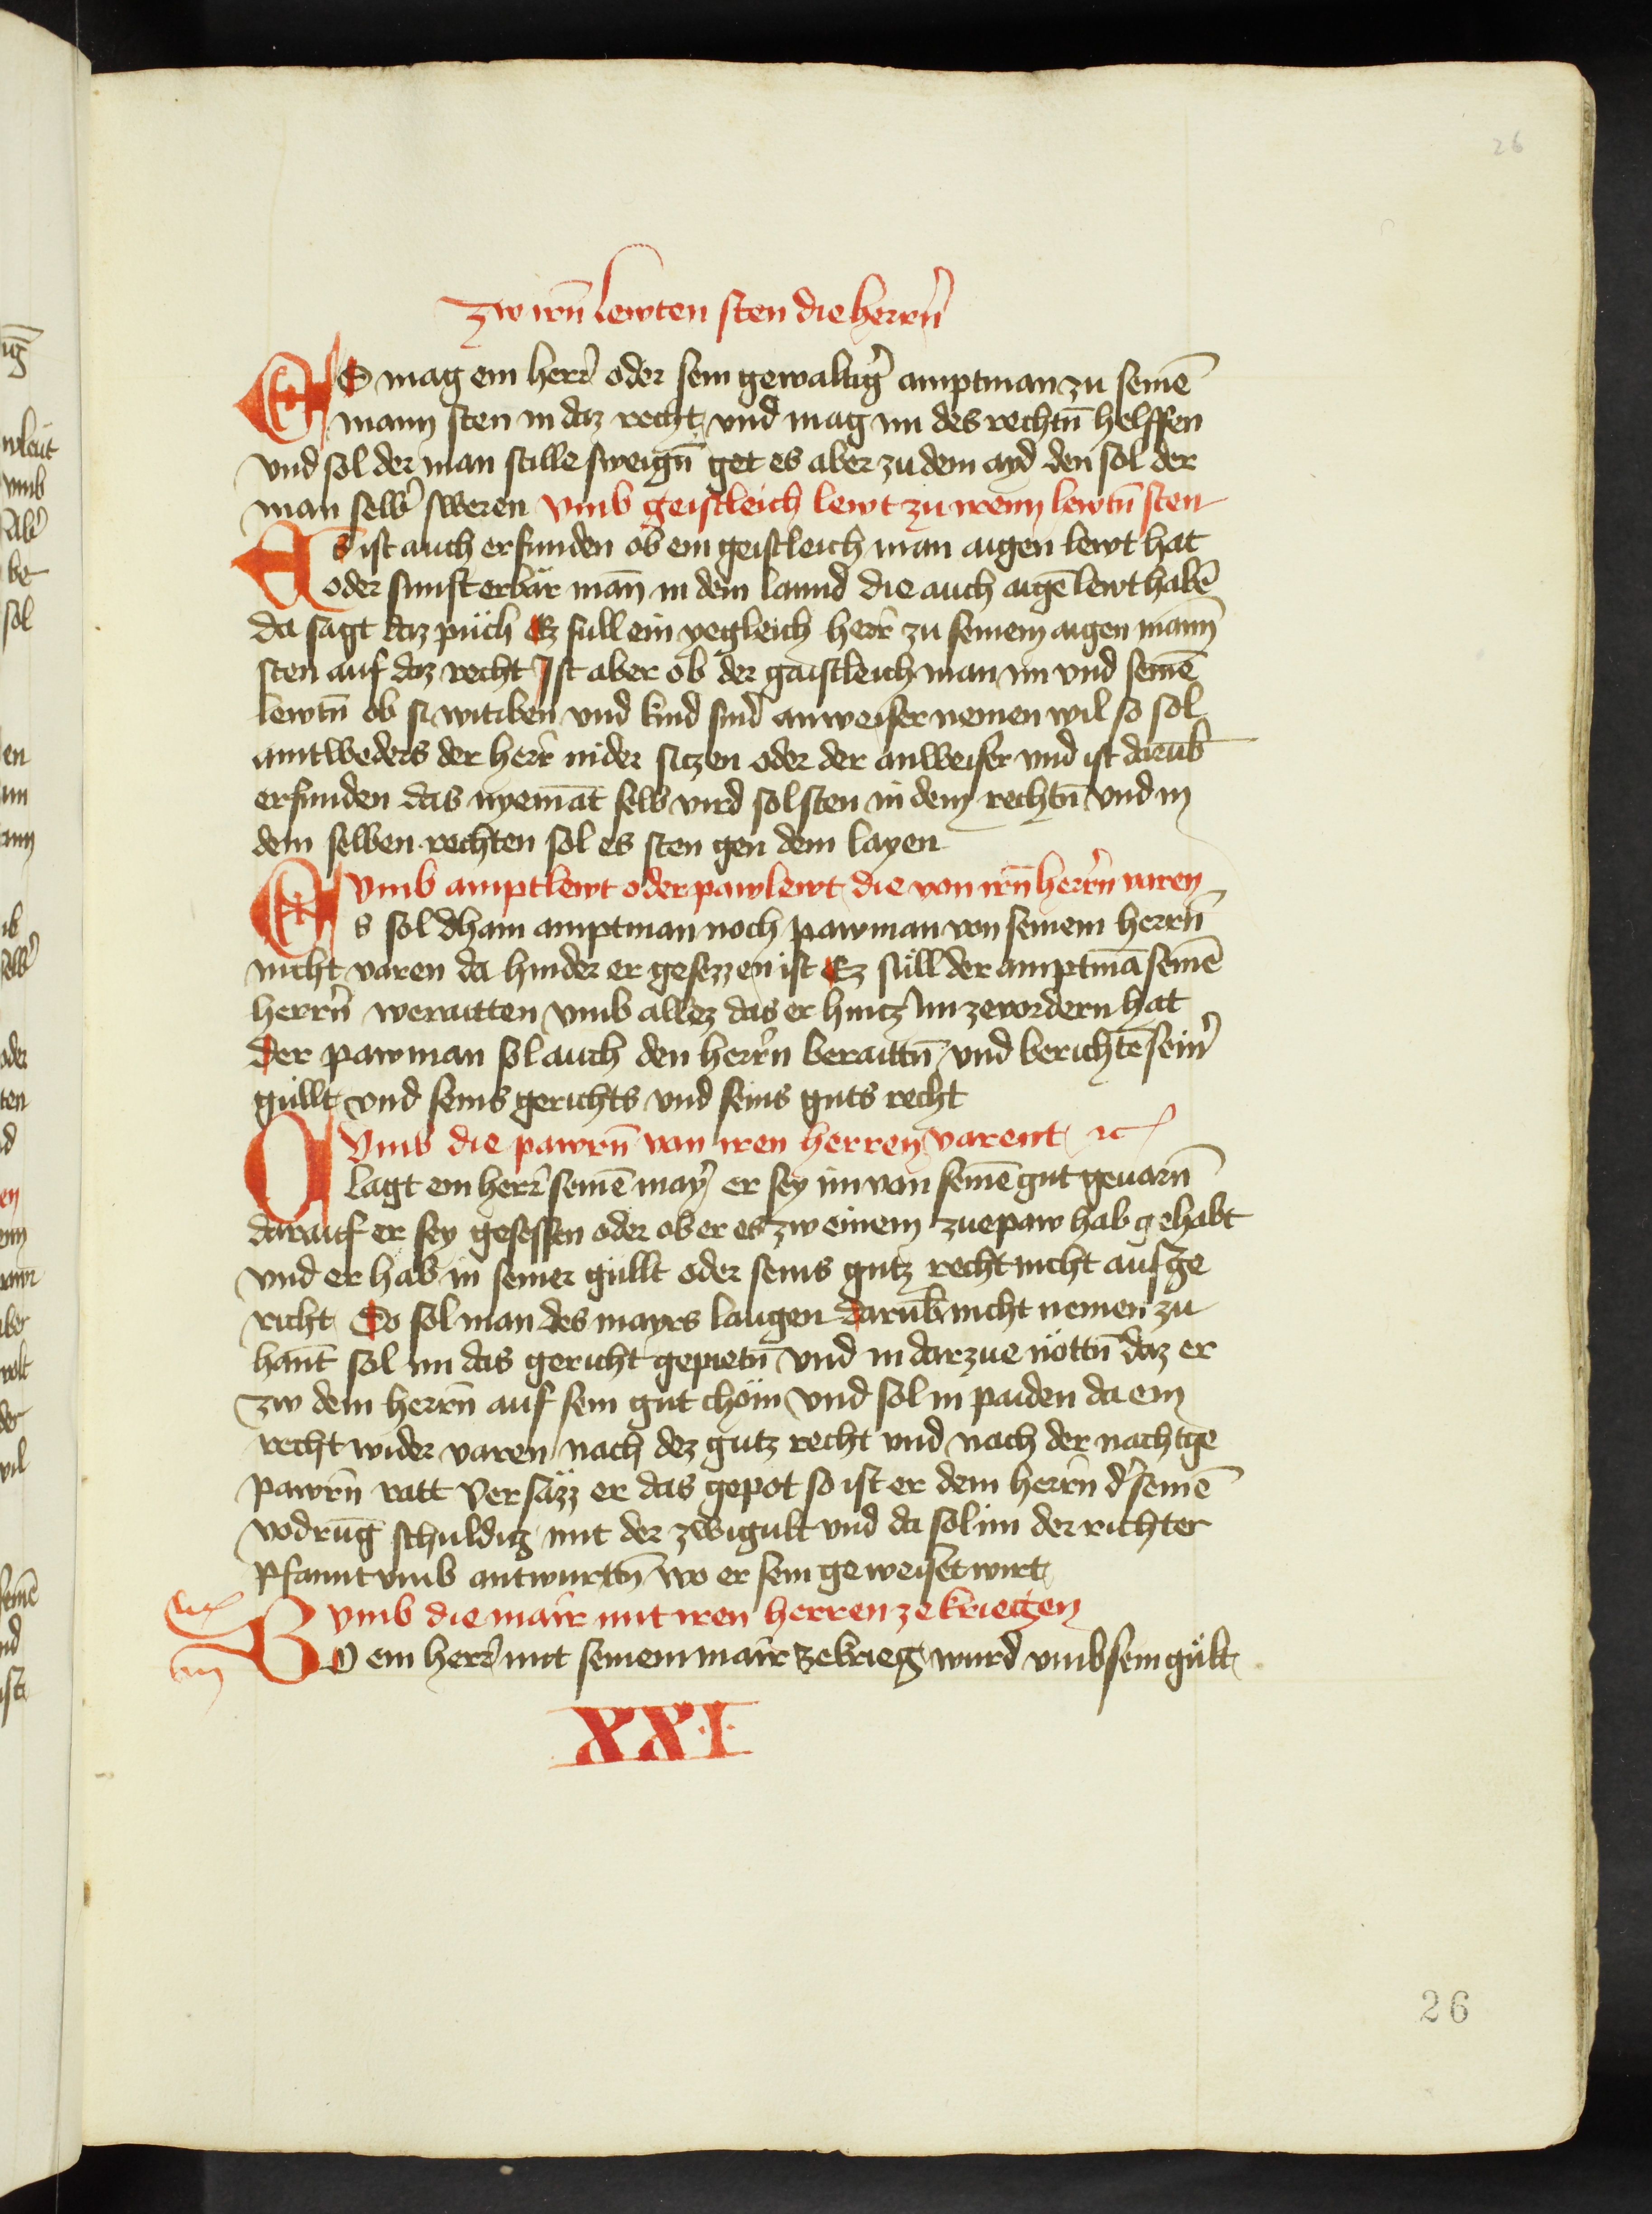 26
Zw irn̄ lewten sten die herrn̄
ES mag ein herr oder sein gewaltig̉ amptman zu seinē
mann sten in daz recht und mag im des rechtn̄ helffen
und sol der man stille sweign̄ get es aber zu dem ayd den sol der
man selb̉ sweren Vmb geistleich lewt zu irenn lewtn̄ sten
Es ist auch erfunden ob ein geistleich man aigen lewt hat
oder sunst erbär man̄ in dem lannd die auch aigē lewt habē
da sagt daz püch Ez sull ein yegleich herr zu seinem aigen mann
sten auf daz recht Ist aber ob der gaistleich man im und seinē
lewtn̄ ob si witiben und kind sind anweiser nemen wil so sol
aintweders der herr nider siczen oder der anweiser und ist darub̄
erfunden das nyemāt selb vird sol sten in dem rechtn̄ und in
dem selben rechten sol es sten gen dem layen
Vmb amptlewt oder pawlewt die von irn̄ herrn̄ varen
Es sol dhain amptman noch pawman von seinem herrn̄
nicht varen da hinder er gesezzen ist Ez süll der amptmā seinē
herrn̄ verraitten umb allez das er hincz im ze vordern hat
der pawman sol auch den herrn̄ beraittn̄ und berichtē sein̉
gullt und seins gerichts und seins guts recht
Vmb die pawrn̄ van iren herren varent ꝛc
Clagt ein herr seinē mayr̉ er sey im von seinē gut gevarn̄
darauf er sey gesessen oder ob er es zw einem zuepaw hab gehabt
und er hab in seiner güllt oder seins gutz recht nicht aufge
richt So sol man des mayrs laugen darub̄ nicht nemen zu
hant̄ sol im das gericht gepietn̄ und in darzue nöttn̄ daz er
zw dem herrn̄ auf sein gut chöm und sol in paiden da ein
recht wider varen nach dez gutz recht und nach der nachtge
pawrn̄ ratt Versäzz er das gepot so ist er dem herrn̄ d̉ seinē
vodrūg schuldig mit der zwigult und da sol im der richter
Pfannt umb antwurttn̄ wo er sein geweiset wirt
Vmb die mair mit iren herren ze kriegen
WO ein herr mit seinem mair ze krieg wurd umb sein gült
XXI
26